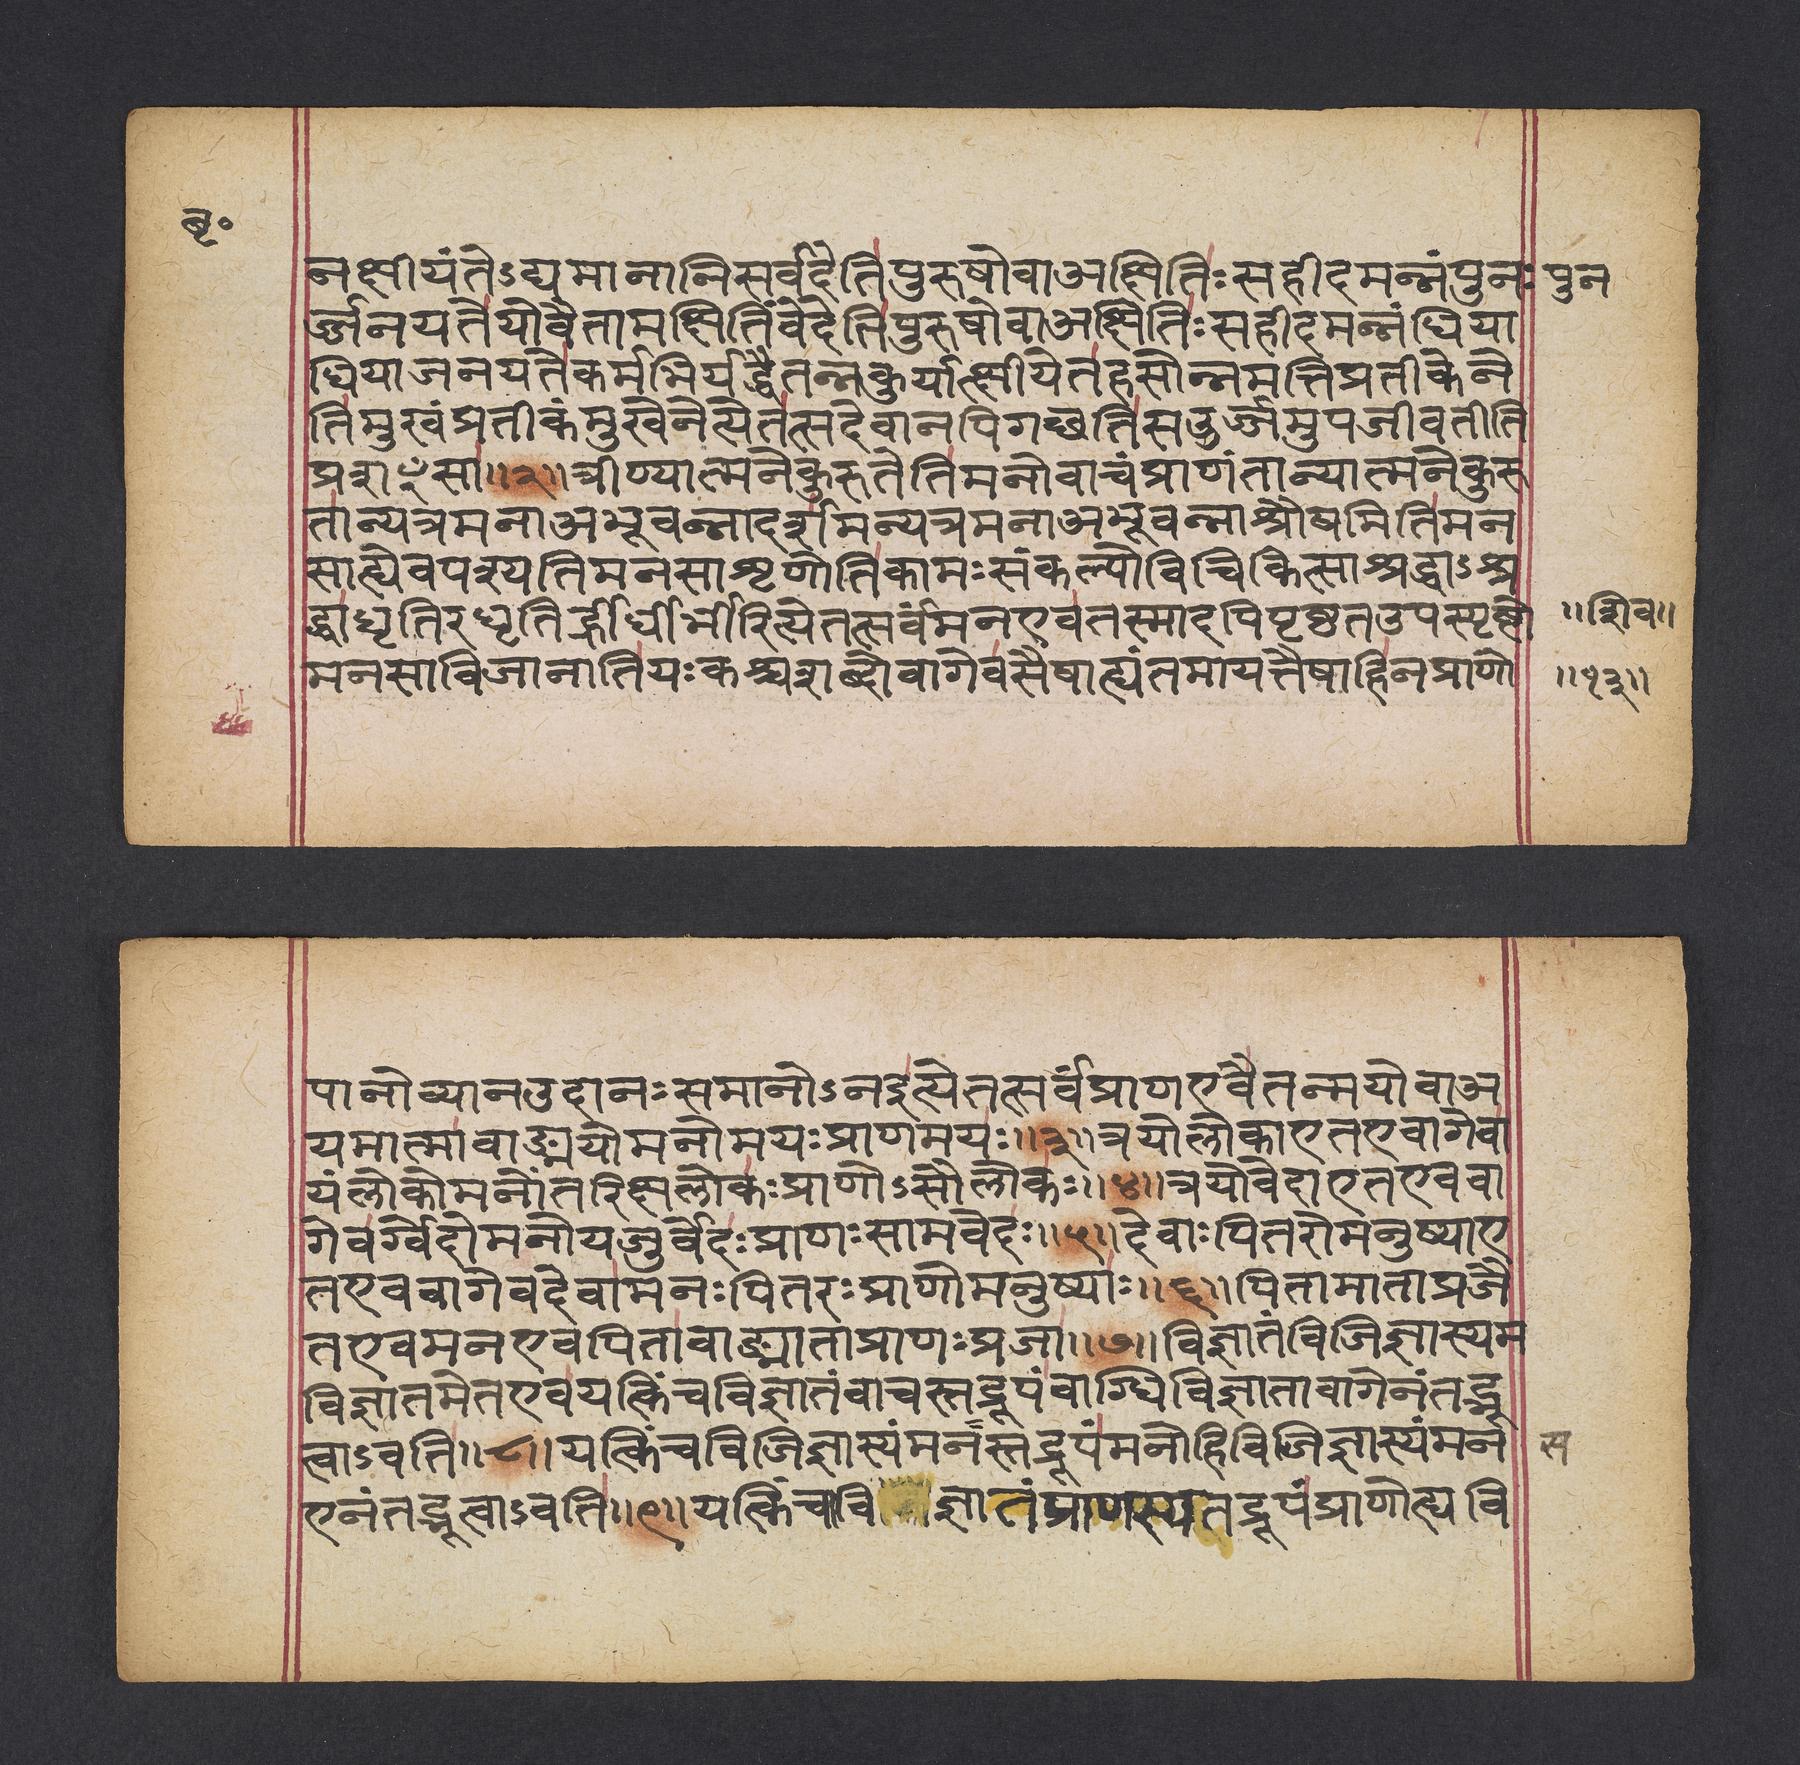 बृ॰
नक्षीयंतेऽद्यमानानिसर्वदेतिपुरुषोवाअक्षितिःसहीदमन्नंपुनःपुन
र्ज्जनयतेयोवैतामक्षितिंवेदेतिपुरुषोवाअक्षितिःसहीदमन्नंधिया
धियाजनयतेकर्मभिर्यद्धैतन्नकुर्यात्क्षीयेतहसोन्नमत्तिप्रतीकेने
तिमुखंप्रतीकंमुखेनेत्येतत्सदेवानपिगछतिसउर्ज्जमुपजीवतीति
प्रशꣳसा॥२॥त्रीण्यात्मनेकुरुतेतिमनोवाचंप्राणंतान्यात्मनेकुरु
तान्यत्रमनाअभूवन्नादर्शमन्यत्रमनाअभूवन्नाश्रौषमितिमन
साह्येवपश्यतिमनसाशृणोतिकामःसंकल्पोविचिकित्साश्रद्धाऽश्र
द्धाधृतिरधृतिर्ह्रीर्धीर्भीरित्येतत्सर्वंमनएवतस्मादपिपृष्ठतउपस्पृष्टो
॥शिव॥
मनसाविजानातियःकश्चशब्दोवागेवसैषाह्यंतमायत्तैषाहिनप्राणो
॥१३॥
पानोव्यानउदानःसमानोऽनइत्येतत्सर्वंप्राणएवैतन्मयोवाअ
यमात्मावाङ्मयोमनोमयःप्राणमयः॥३॥त्रयोलोकाएतएवागेवा
यंलोकोमनोंतरिक्षलोकःप्राणोऽसौलोकः॥४॥त्रयोवेदाएतएववा
गेवर्ग्वेदोमनोयजुर्वेदःप्राणःसामवेदः॥५॥देवाःपितरोमनुष्याए
तएववागेवदेवामनःपितरःप्राणोमनुष्याः॥६॥पितामाताप्रजै
तएवमनएवपितावाङ्माताप्राणःप्रजा॥७॥विज्ञातंविजिज्ञास्यम
विज्ञातमेतएवयत्किंचविज्ञातंवाचस्तद्रूपंवाग्घिविज्ञातावागेनंतद्भू
त्वाऽवति॥८॥यत्किंचविजिज्ञास्यंमनस्तद्रूपंमनोहिविजिज्ञास्यंमन
स
एनंतद्भूत्वाऽवति॥९॥यत्किंचाविज्ञातंप्राणस्यतद्रूपंप्राणोह्यवि